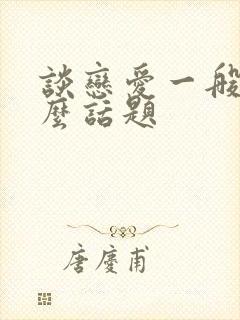 談戀愛一般
麼話題
唐慶甫